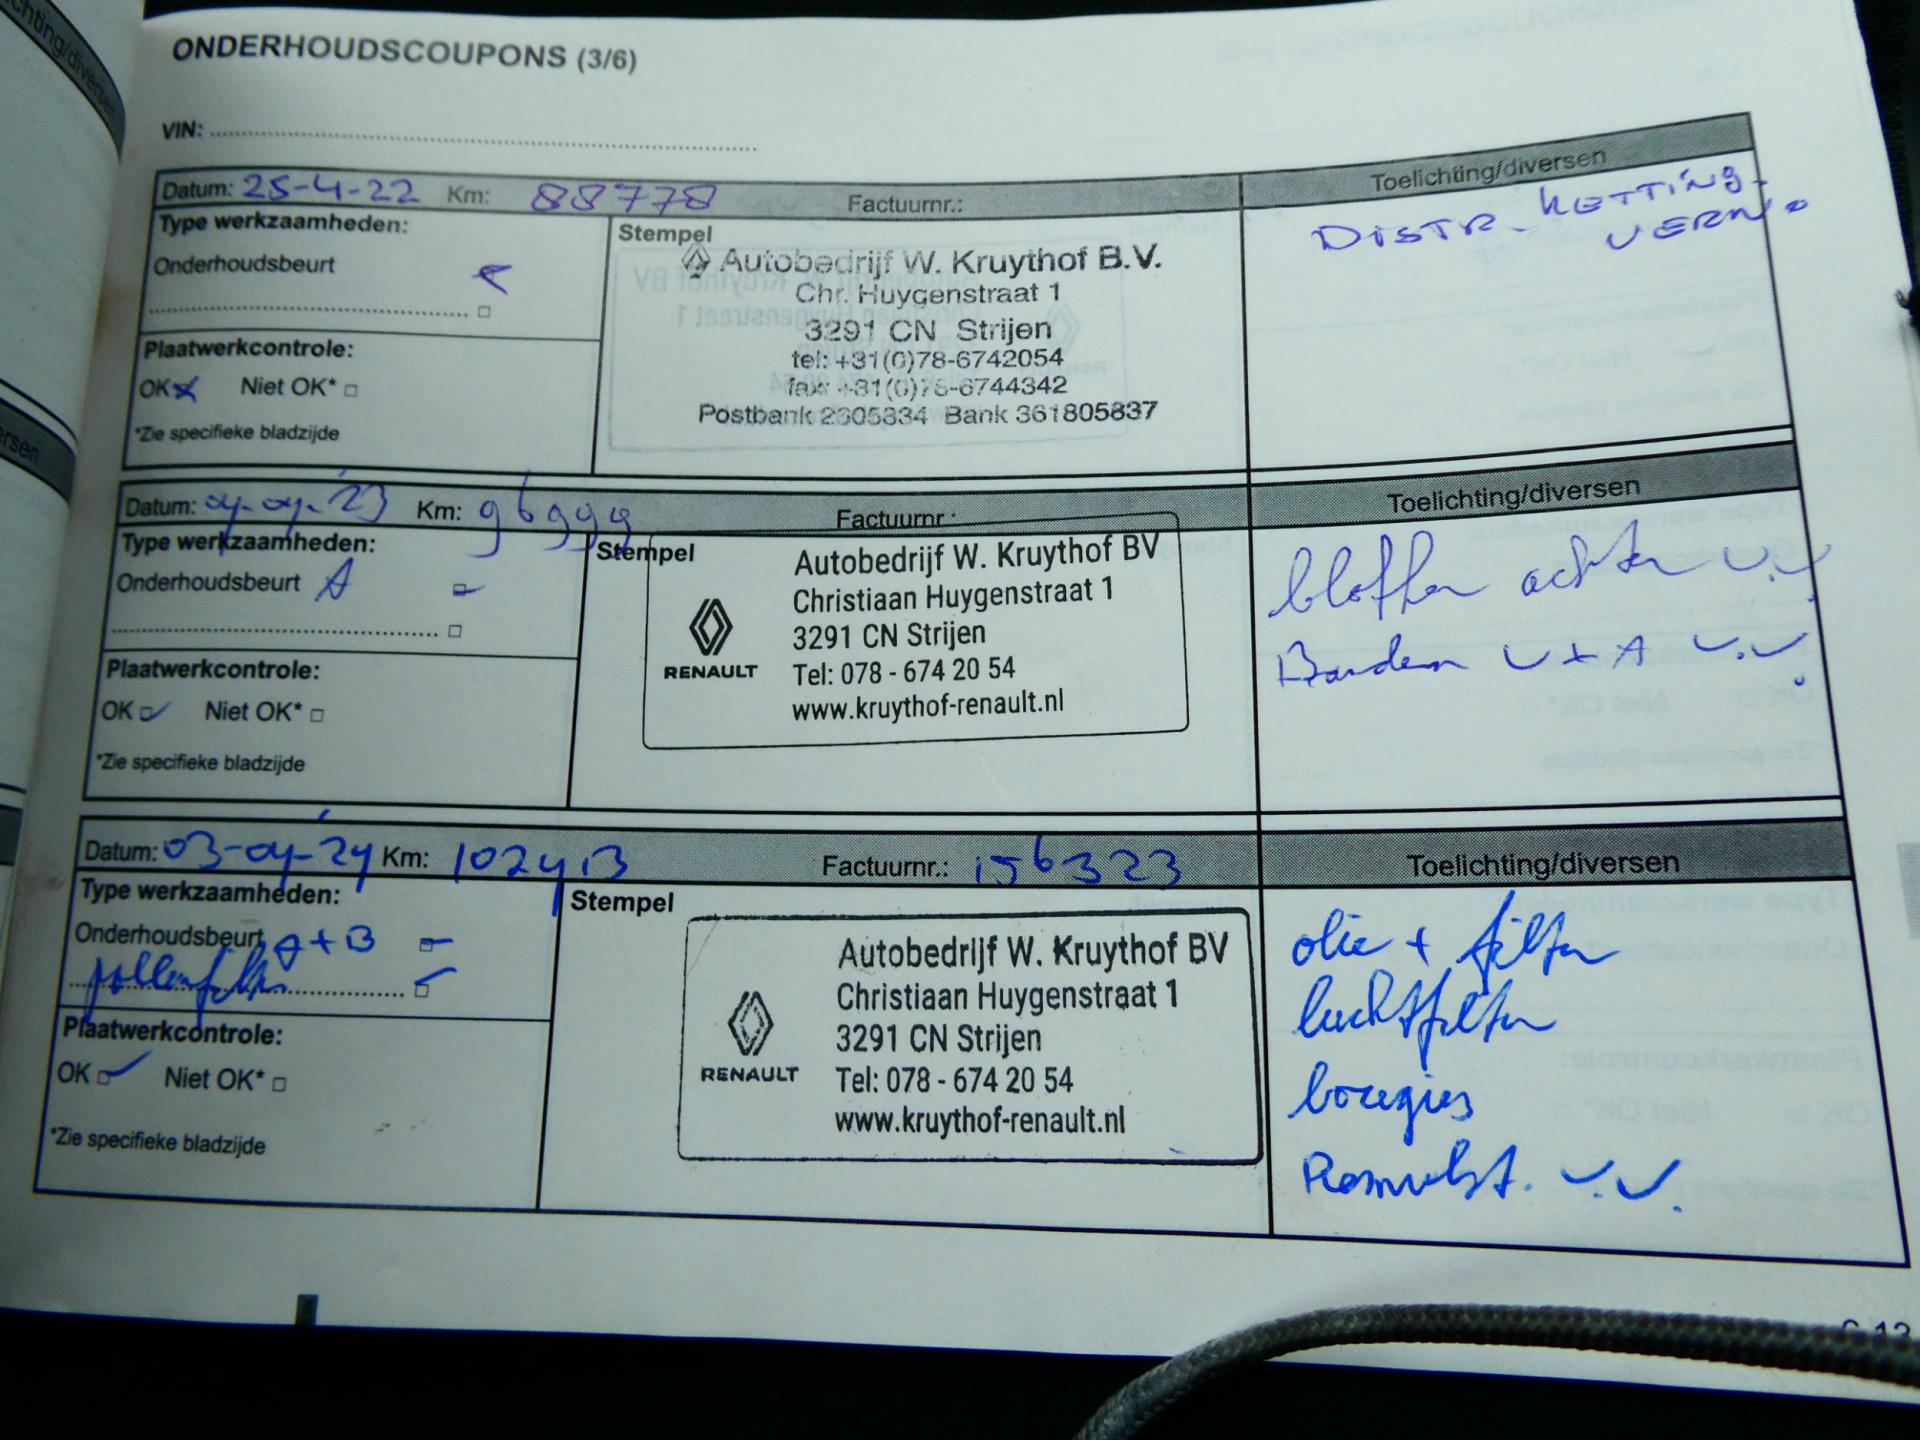 ONDERHOUDSCOUPONS (3/6)
VIN:
Datum: 25-4-22 Km: 88778 Factuurnr.: Toelichting/diversen
Type werkzaamheden:
Stempel
Onderhoudsbeurt
Plaatwerkcontrole:
OK Niet OK*
*Zie specifieke bladzijde
Autobedrijf W. Kruythof B.V.
Chr. Huygenstraat 1
3291 CN Strijen
tel: +31(0)78-6742054
fax: +31(0)78-6744342
Postbank 2305334 Bank 361805837
DISTR. KETTING.
VERN.
Datum: 04-04-'23 Km: 96999 Factuurnr.: Toelichting/diversen
Type werkzaamheden:
Stempel
Onderhoudsbeurt A
Plaatwerkcontrole:
OK Niet OK*
*Zie specifieke bladzijde
RENAULT
Autobedrijf W. Kruythof BV
Christiaan Huygenstraat 1
3291 CN Strijen
Tel: 078 - 674 20 54
www.kruythof-renault.nl
blokken achter v.v.
Banden V + A v.v.
Datum: 03-04-'24 Km: 102413 Factuurnr.: 156323 Toelichting/diversen
Type werkzaamheden:
Stempel
Onderhoudsbeurt A+B
pollenfilter
Plaatwerkcontrole:
OK Niet OK*
*Zie specifieke bladzijde
RENAULT
Autobedrijf W. Kruythof BV
Christiaan Huygenstraat 1
3291 CN Strijen
Tel: 078 - 674 20 54
www.kruythof-renault.nl
olie + filter
luchtfilter
bougies
Remvlst. v.v.